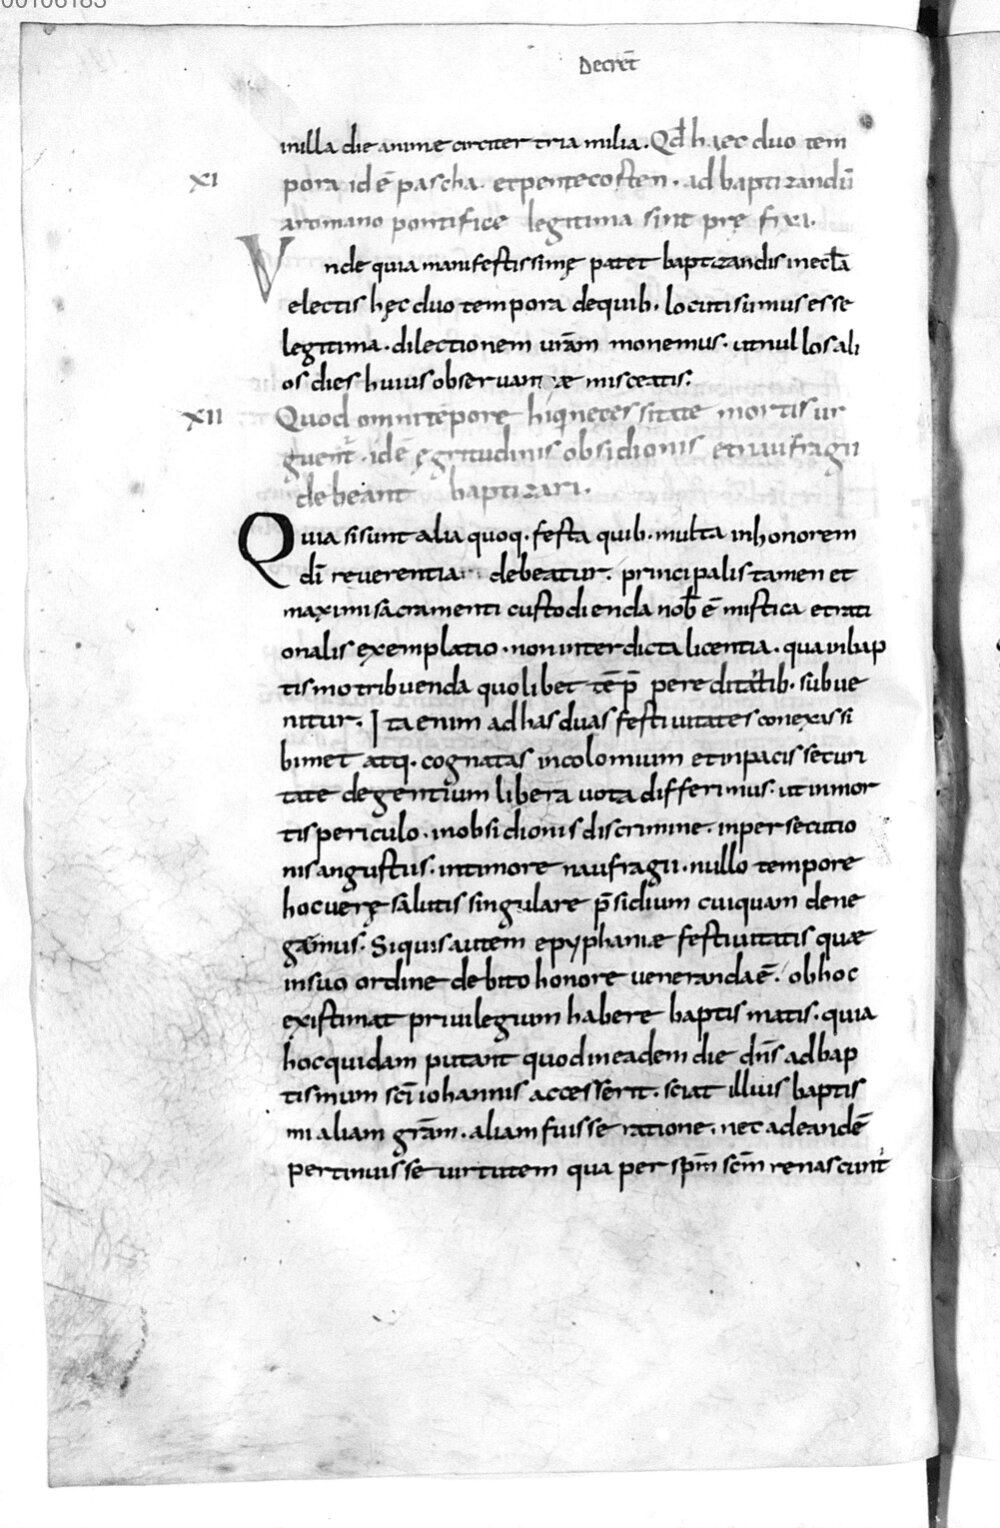 00106183
Decret̄
in illa die animæ circiter tria milia. Qd̄ haec duo tem
XI pora id ē pascha. et pentecosten. ad baptizandū
a romano pontifice legitima sint pręfixi.
Vnde quia manifestissimę patet baptizandis in eccl̄a
electis hęc duo tempora de quib. locuti sumus esse
legitima. dilectionem ur̄am monemus. ut nullos ali
os dies huius obseruantiæ misceatis.
XII Quod omni tēpore hi qui necessitate mortis ur
guent̄. id ē ęgritudinis obsidionis et naufragii
debeant baptizari.
Quia si sunt alia quoq. festa quib. multa in honorem
dī reuerentia debeatur. principalis tamen et
maximi sacramenti custodienda nob̄ ē mistica et rati
onalis exemplatio. non interdicta licentia. qua in bap
tismo tribuenda quolibet tēp̄ pereditatib. subue
nitur. Ita enim ad has duas festiuitates conexis si
bimet atq. cognatas incolomium et in pacis securi
tate degentium libera uota differimus. ut in mor
tis periculo. in obsidionis discrimine. in persecutio
nis angustus. in timore naufragii. nullo tempore
hoc uerę salutis singulare p̄sidium cuiquam dene
gamus. Si quis autem epyphaniæ festiuitatis quæ
in suo ordine debito honore ueneranda ē. ob hoc
existimat priuilegium habere baptismatis. quia
hoc quidam putant quod in eadem die dn̄s ad bap
tismum scī iohannis accesserit. sciat illius baptis
mi aliam grām. aliam fuisse ratione. nec ad eandē
pertinuisse uirtutem qua per spm̄ scm̄ renascunt̄